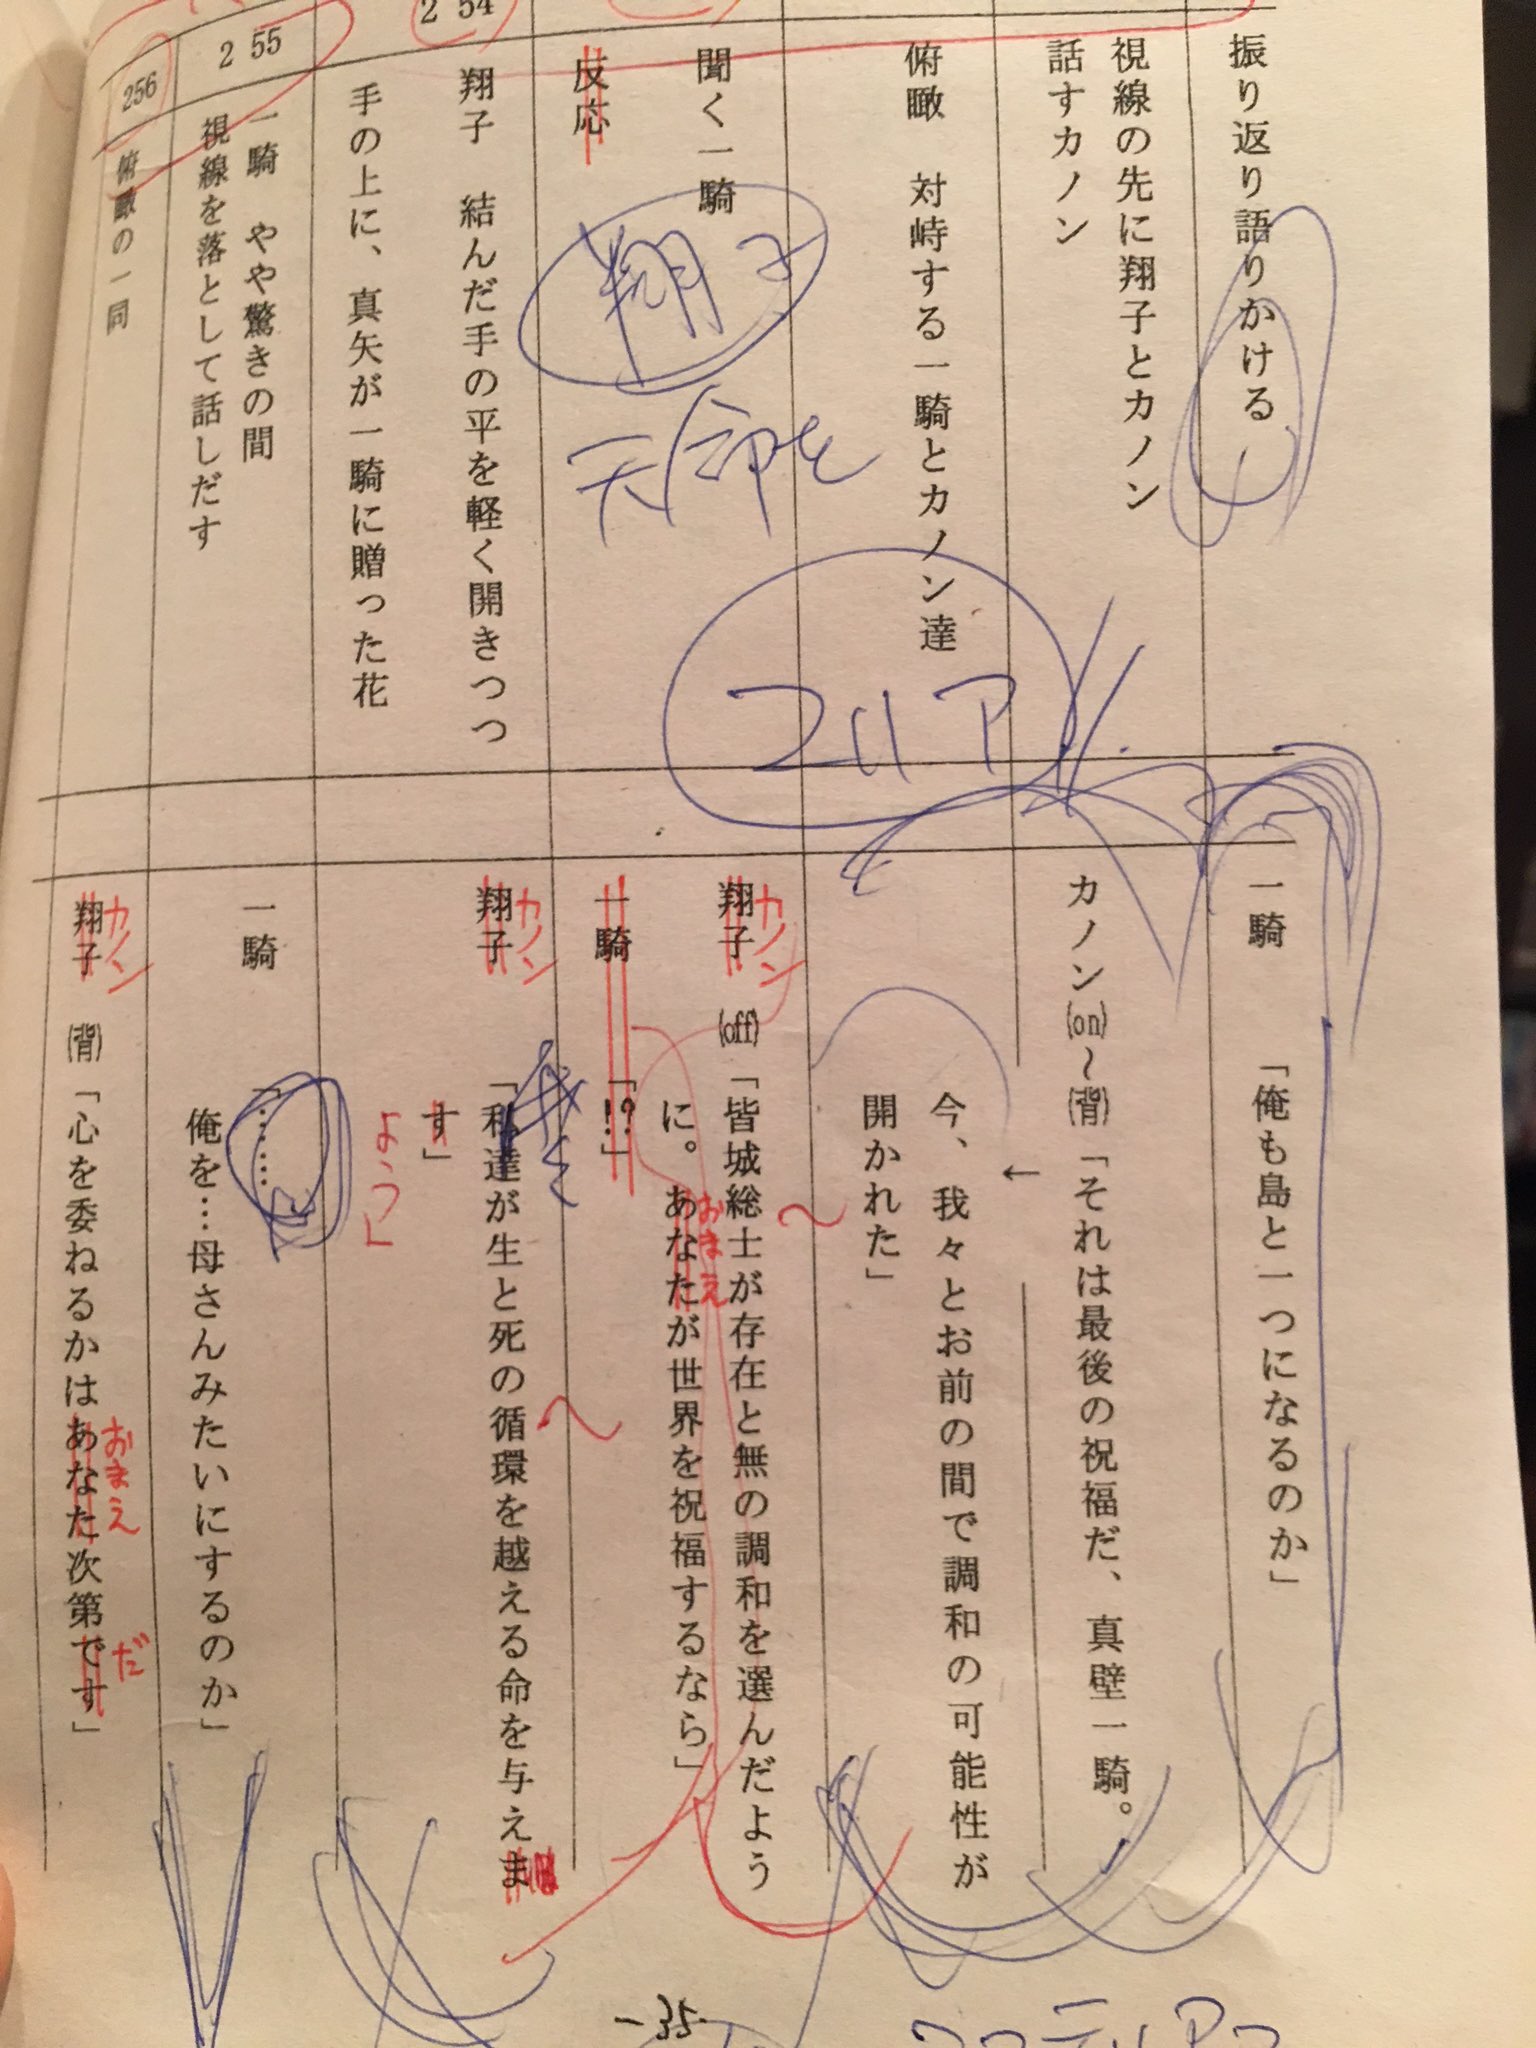 振り返り語りかける
視線の先に翔子とカノン
話すカノン
俯瞰　対峙する一騎とカノン達
聞く一騎
反応
翔子
天命を
254
翔子　結んだ手の平を軽く開きつつ
手の上に、真矢が一騎に贈った花
255
一騎　やや驚きの間
視線を落として話しだす
256
俯瞰の一同
一騎　「俺も島と一つになるのか」
カノン(on)～(背)「それは最後の祝福だ、真壁一騎。
↓
今、我々とお前の間で調和の可能性が
開かれた」
カノン
翔子　(off)「皆城総士が存在と無の調和を選んだよう
おまえ
に。あなたが世界を祝福するなら」
一騎　「!?」
カノン
翔子　「私達が生と死の循環を越える命を与えま
す」
よう」
一騎　「……
俺を…母さんみたいにするのか」
カノン
おまえ
だ
翔子　(背)「心を委ねるかはあなた次第です」
-35-